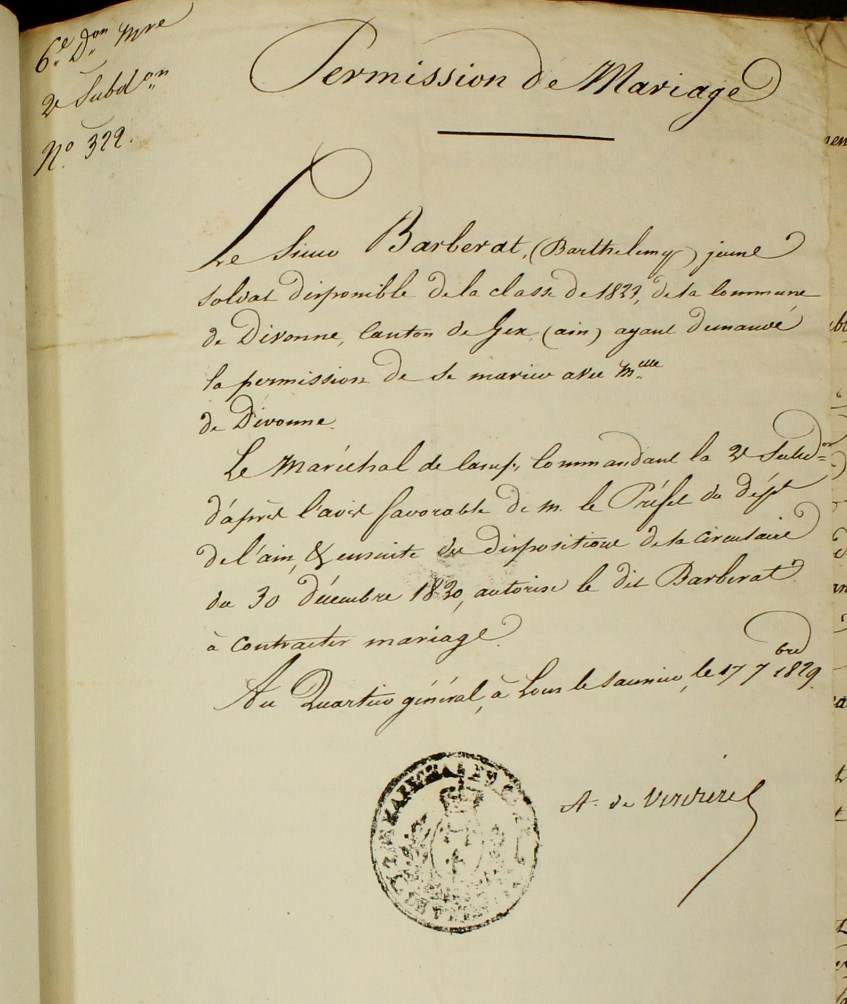 6.e D.on Mre
2e Subd.on
N.o 322.
Permission de Mariage
Le Sieur Barberat, (Barthelemy) jeune
soldat disponible de la classe de 1822, de la Commune
de Divonne, Canton de Gex (ain) ayant demandé
la permission de se marier avec Melle
de Divonne.
Le Maréchal de Camp, Commandant la 2e Subd.on
d'après l'avis favorable de M. le Préfet du dépt
de l'ain, & ensuite des dispositions de la Circulaire
du 30 décembre 1820, autorise le dit Barberat
à Contracter mariage.
Au Quartier général, à Lons le Saunier, le 17 7bre 1829.
A. de